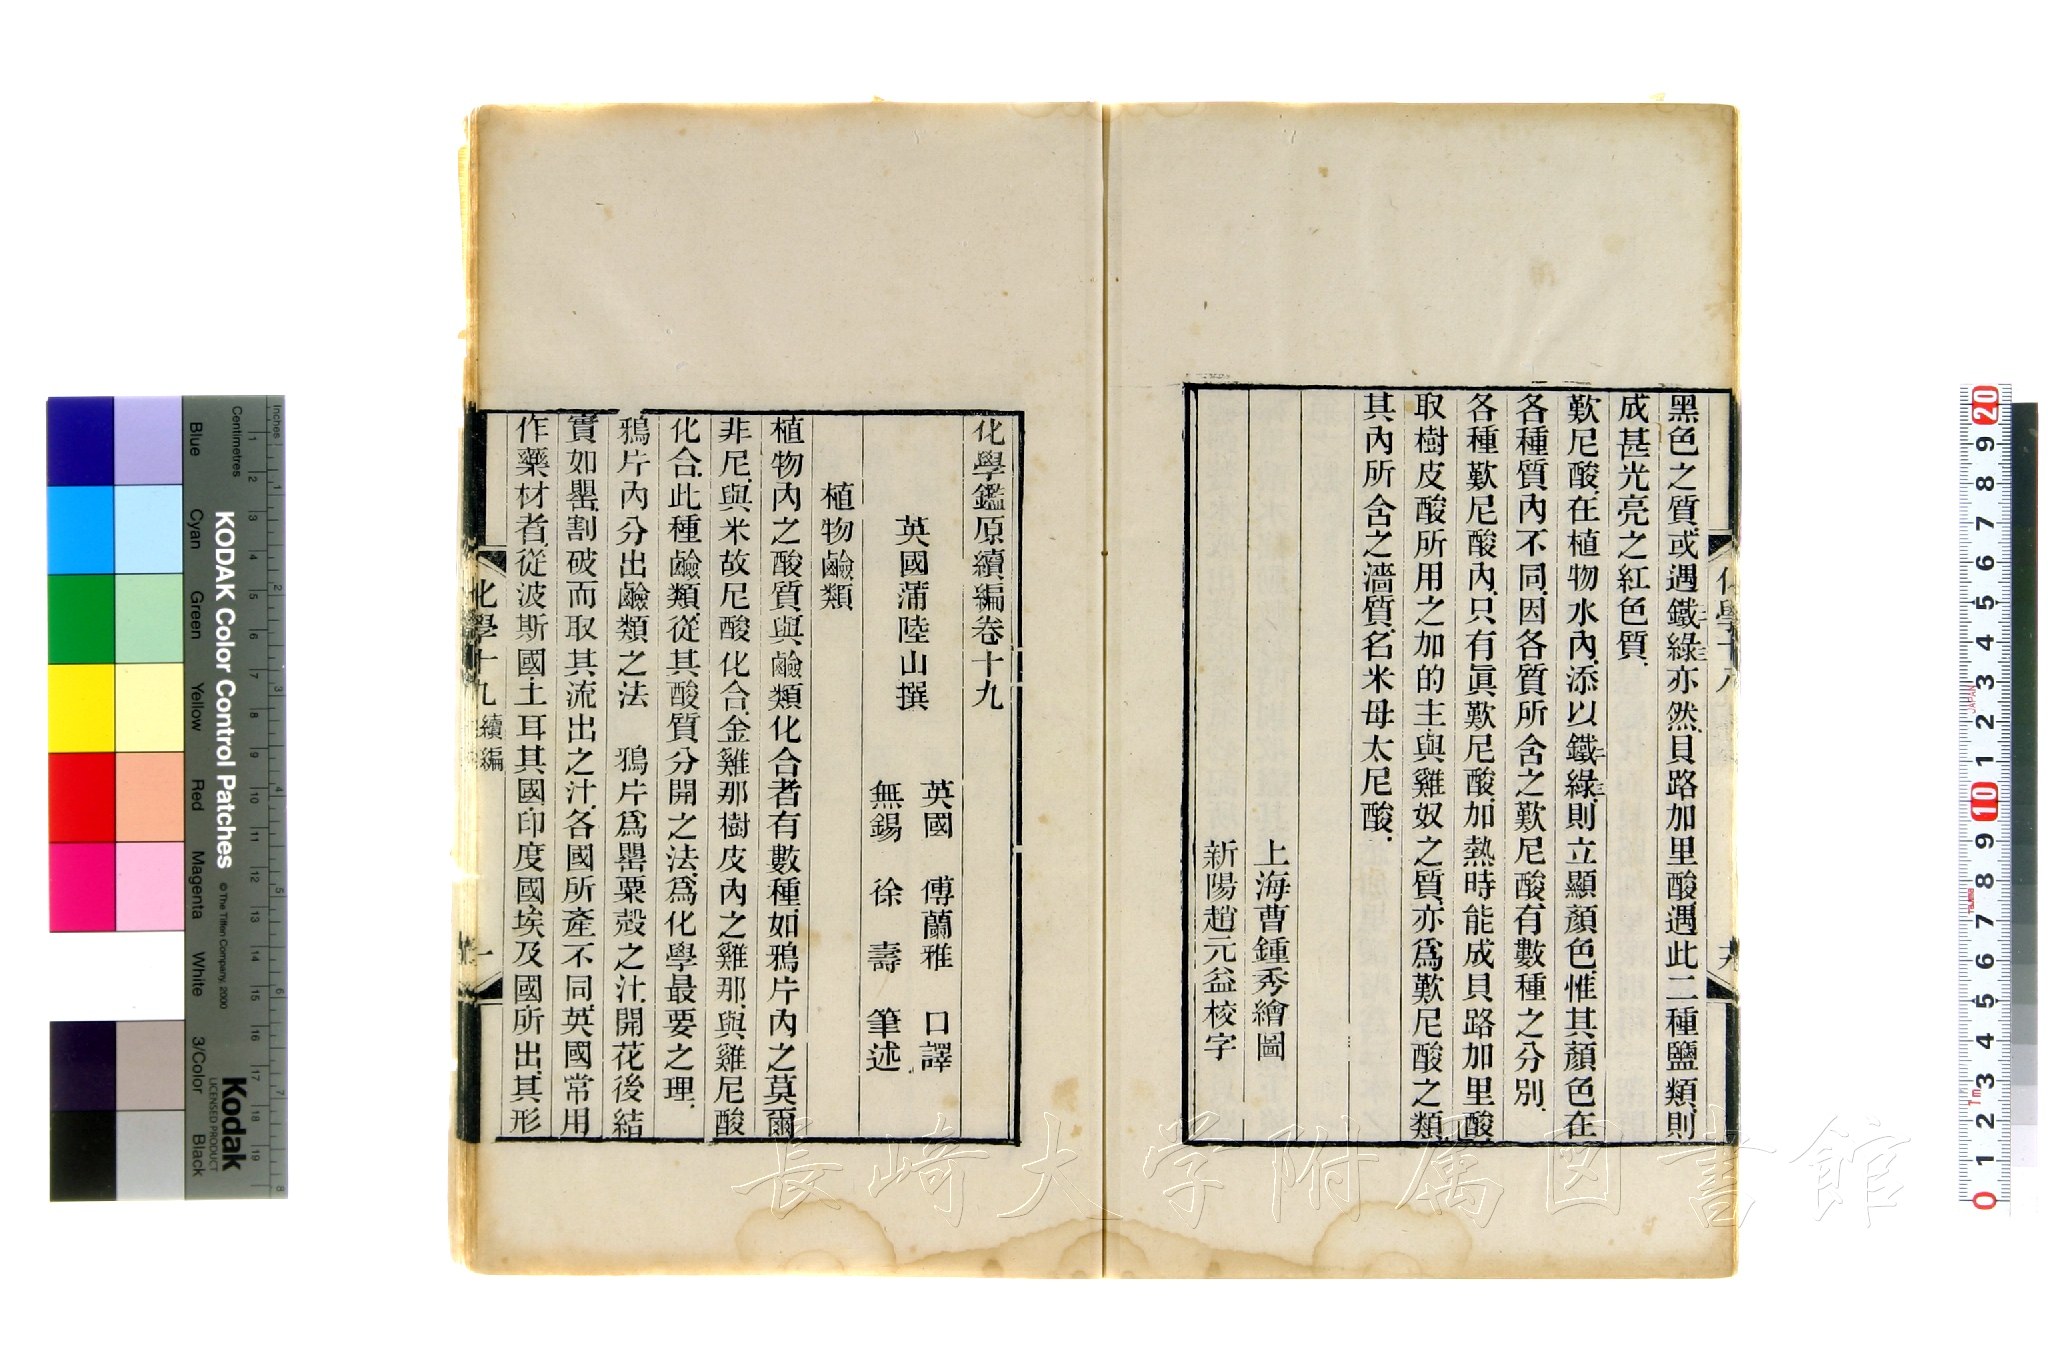 黑色之質或遇鐵綠三亦然貝路加里酸遇此二種鹽類則
成甚光亮之紅色質
歎尼酸在植物水內添以鐵二綠三則立顯顏色惟其顏色在
各種質內不同因各質所含之歎尼酸有數種之分別
各種歎尼酸內只有眞歎尼酸加熱時能成貝路加里酸
取樹皮酸所用之加的主與雞奴之質亦爲歎尼酸之類
其內所含之濇質名米母太尼酸
上海曹鍾秀繪圖
新陽趙元益校字
化學鑑原續編卷十九
英國蒲陸山撰
英國 傅蘭雅 口譯
無錫 徐 壽 筆述
植物鹼類
植物內之酸質與鹼類化合者有數種如鴉片內之莫爾
非尼與米故尼酸化合金雞那樹皮內之雞那與雞尼酸
化合此種鹼類從其酸質分開之法爲化學最要之理
鴉片內分出鹼類之法 鴉片爲罌粟殼之汁開花後結
實如罌割破而取其流出之汁各國所產不同英國常用
作藥材者從波斯國土耳其國印度國埃及國所出其形
化學十九 續編
一
長崎大学附属図書館
KODAK Color Control Patches
© The Tiffen Company, 2000
Kodak
LICENSED PRODUCT
Inches
Centimetres
Blue
Cyan
Green
Yellow
Red
Magenta
White
3/Color
Black